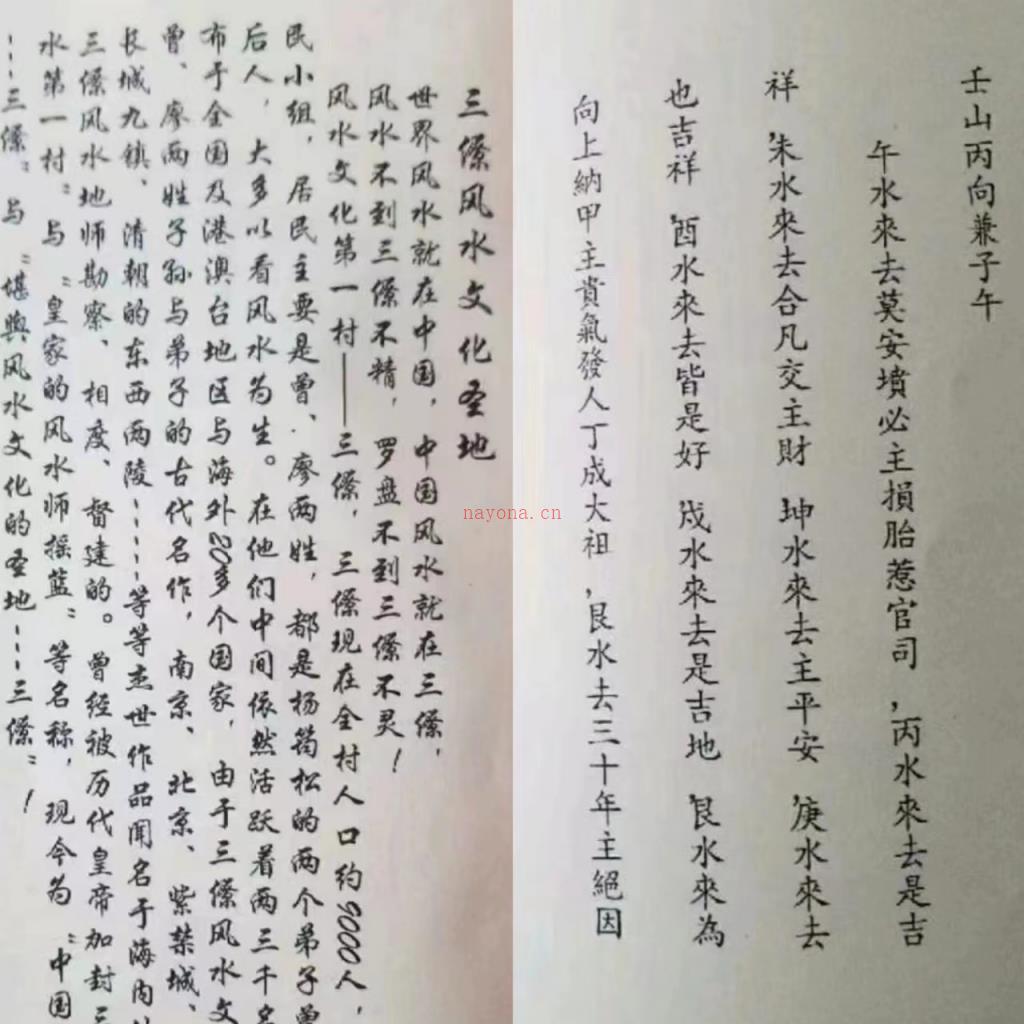 三僚风水文化圣地
世界风水就在中国，中国风水就在三僚，
风水不到三僚不精，罗盘不到三僚不灵！
风水文化第一村——三僚，三僚现在全村人口约9000人，
民小组，居民主要是曾、廖两姓，都是杨筠松的两个弟子曾
后人，大多以看风水为生。在他们中间依然活跃着两三千名
布于全国及港澳台地区与海外20多个国家，由于三僚风水文
曾、廖两姓子孙与弟子的古代名作，南京、北京、紫禁城、
长城九镇、清朝的东西两陵……等等杰世作品闻名于海内
三僚风水地师勘察、相度、督建的。曾经被历代皇帝加封三
水第一村"与"皇家的风水师摇篮"等名称，现今为"中国
……三僚"与"堪舆风水文化的圣地……三僚"！
壬山丙向兼子午
午水來去莫安墳必主損胎惹官司，丙水來去是吉
祥，朱水來去合凡交主財，坤水來去主平安，庚水來去
也吉祥，酉水來去皆是好，戌水來去是吉地，艮水來為
向上納甲主貴氣發人丁成大祖，艮水去三十年主絕因
nayona.cn